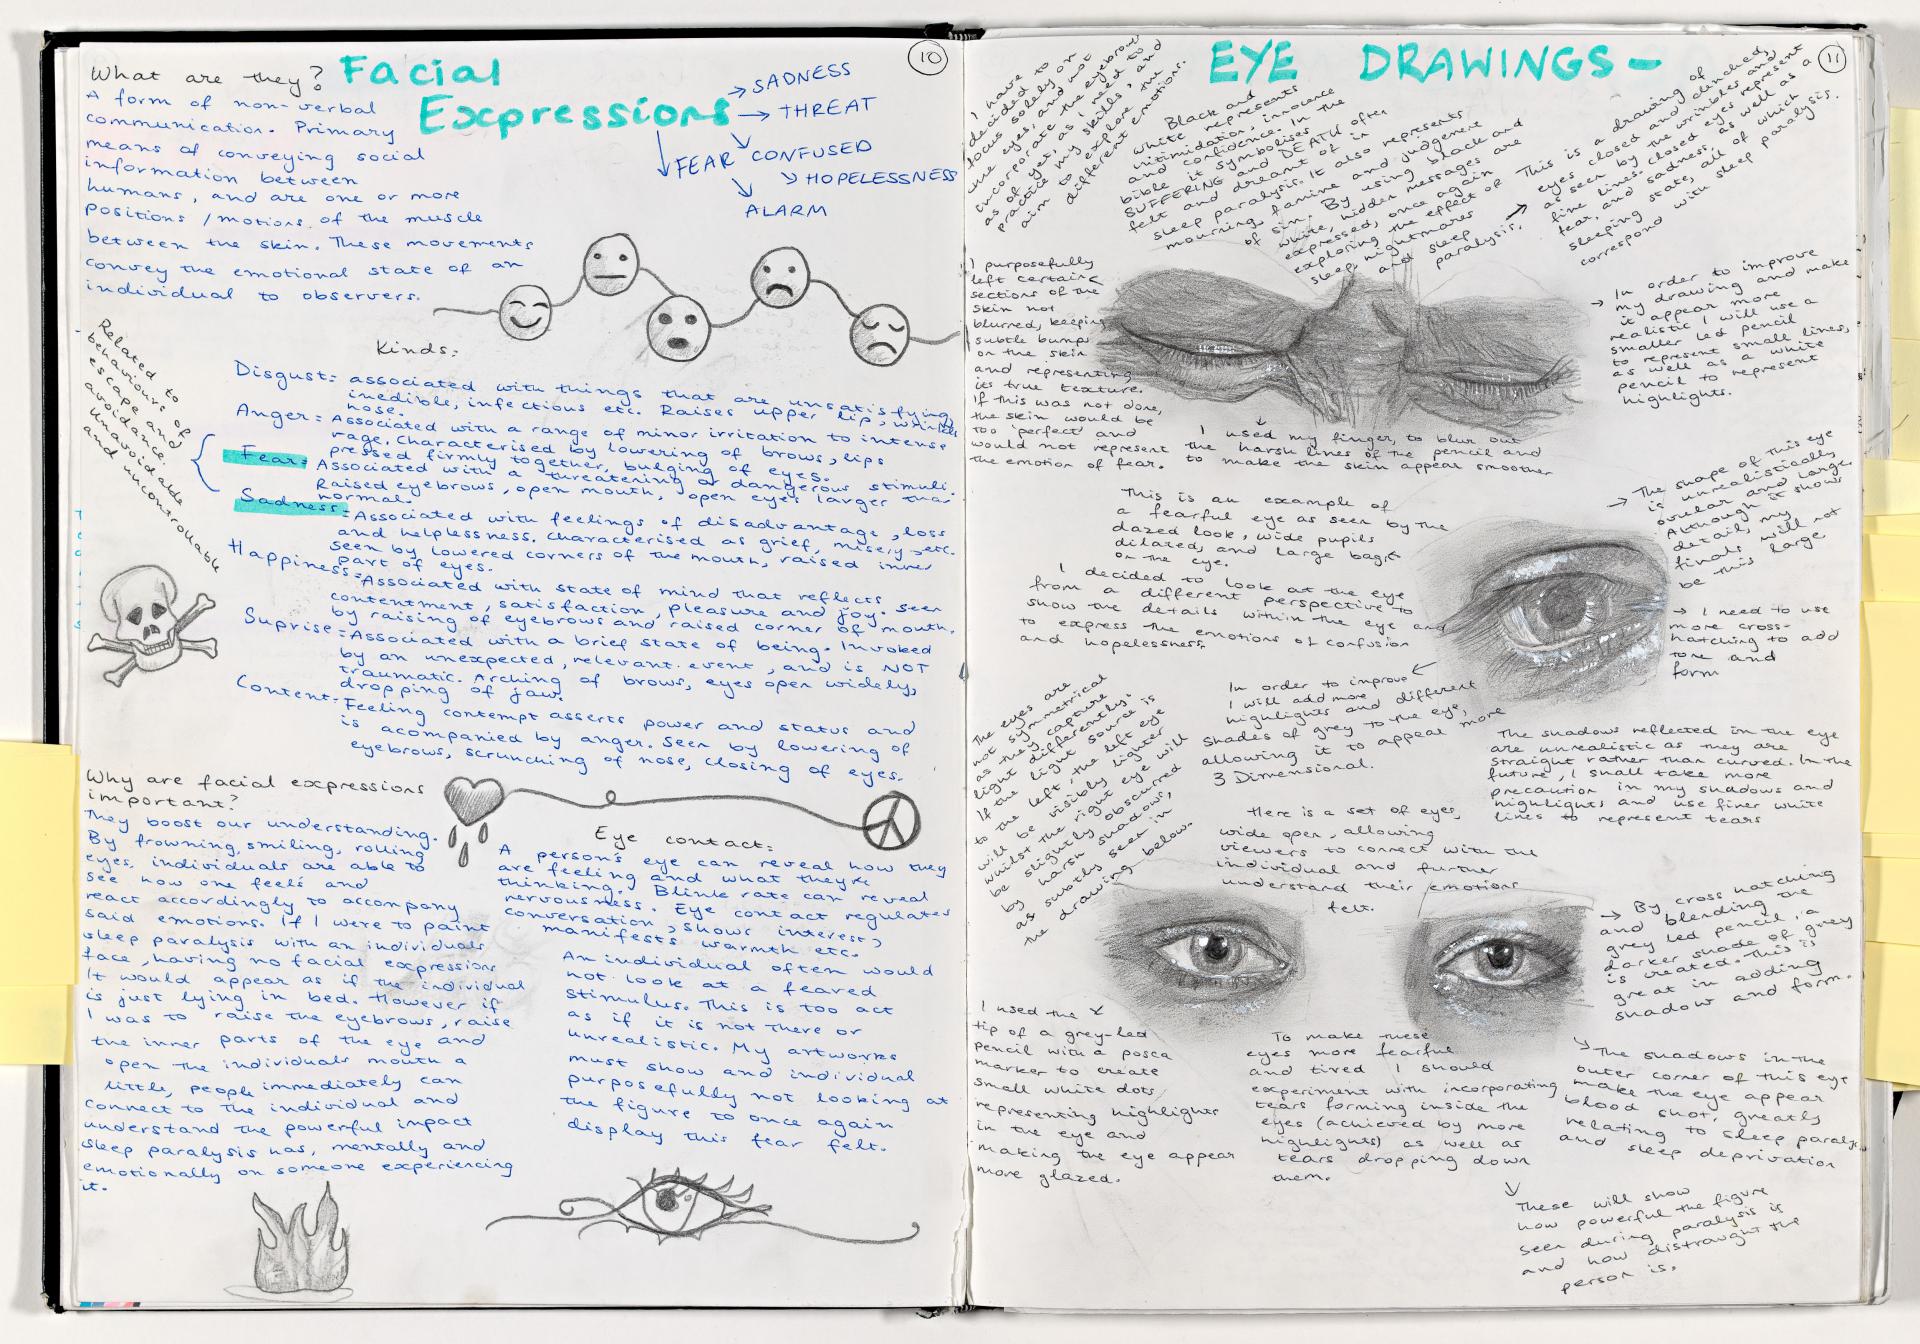 10
What are they?
Facial
Expressions
SADNESS
THREAT
FEAR
CONFUSED
HOPELESSNESS
ALARM
A form of non-verbal
communication. Primary
means of conveying social
information between
humans, and are one or more
positions / motions of the muscle
between the skin. These movements
convey the emotional state of an
individual to observers.
Related to
behaviours of
escape and
avoidance.
Unavoidable
and uncontrollable
Kinds:
Disgust: associated with things that are unsatisfying,
inedible, infectious etc. Raises upper lip, wrinkles
nose.
Anger = Associated with a range of minor irritation to intense
rage. Characterised by lowering of brows, lips
pressed firmly together, bulging of eyes.
Fear = Associated with a threatening or dangerous stimuli.
Raised eyebrows, open mouth, open eyes larger than
normal.
Sadness = Associated with feelings of disadvantage, loss
and helplessness. Characterised as grief, misery, etc.
Seen by lowered corners of the mouth, raised inner
part of eyes.
Happiness = Associated with state of mind that reflects
contentment, satisfaction, pleasure and joy. Seen
by raising of eyebrows and raised corner of mouth.
Suprise = Associated with a brief state of being. Invoked
by an unexpected, relevant event, and is NOT
traumatic. Arching of brows, eyes open widely,
dropping of jaw.
Content: Feeling contempt asserts power and status and
is acompanied by anger. Seen by lowering of
eyebrows, scrunching of nose, closing of eyes.
Why are facial expressions
important?
They boost our understanding.
By frowning, smiling, rolling
eyes, individuals are able to
see how one feels and
react accordingly to accompany
said emotions. If I were to paint
sleep paralysis with an individuals
face, having no facial expressions
It would appear as if the individual
is just lying in bed. However if
I was to raise the eyebrows, raise
the inner parts of the eye and
open the individuals mouth a
little, people immediately can
connect to the individual and
understand the powerful impact
sleep paralysis has, mentally and
emotionally on someone experiencing
it.
Eye contact:
A person's eye can reveal how they
are feeling and what they're
thinking. Blink rate can reveal
nervousness. Eye contact regulates
conversation, shows interest,
manifests warmth etc.
An individual often would
not look at a feared
stimulus. This is too act
as if it is not there or
unrealistic. My artworks
must show and individual
purposefully not looking at
the figure to once again
display this fear felt.
11
EYE DRAWINGS-
I have to
decided to
focus solely on
the eyes, and not
incorporate the eyebrows
as of yet, as I need to
practice my skills, and
aim to explore the
different emotions.
Black and
white represents
intimidation, innocence
and confidence. In the
bible it symbolises
SUFFERING and DEATH often
felt and dreamt of in
sleep paralysis. It also represents
mourning, famine and judgement
of sin. By using black and
white, hidden messages are
expressed, once again
exploring the effect of
sleep, nightmares
and sleep
paralysis.
This is a drawing of
eyes closed and clenched,
as seen by the wrinkles and
fine lines. closed eyes represent
fear, and sadness, as well as a
sleeping state, all of which
correspond with sleep paralysis.
I purposefully
left certain
sections of the
skin not
blurred, keeping
subtle bumps
on the skin
and representing
its true texture.
If this was not done,
the skin would be
too 'perfect' and
would not represent
the emotion of fear.
I used my finger, to blur out
the harsh lines of the pencil and
to make the skin appear smoother
In order to improve
my drawing and make
it appear more
realistic I will use a
smaller led pencil
to represent small lines,
as well as a white
pencil to represent
highlights.
This is an example of
a fearful eye as seen by the
dazed look, wide pupils
dilated, and large bags
on the eye.
I decided to look at the eye
from a different perspective to
show the details within the eye and
to express the emotions of confusion
and hopelessness.
The shape of this eye
is unrealistically
ovular and large.
Although it shows
detail, my
finals will not
be this large
I need to use
more cross-
hatching to add
tone and
form
In order to improve
I will add more
highlights and different
shades of grey to the eye,
allowing it to appear more
3 Dimensional.
The shadows reflected in the eye
are unrealistic as they are
straight rather than curved. In the
future, I shall take more
precaution in my shadows and
highlights and use finer white
lines to represent tears
The eyes are
not symmetrical
as they capture
light differently.
If the light source is
to the left, the left eye
will be visibly lighter
whilst the right eye will
be slightly obscured
by harsh shadows,
as subtly seen in
the drawing below.
Here is a set of eyes,
wide open, allowing
viewers to connect with the
individual and further
understand their emotions
felt.
By cross hatching
and blending the
grey led pencil, a
darker shade of grey
is created. This is
great in adding
shadow and form.
I used the
tip of a grey-led
pencil with a posca
marker to create
small white dots
representing highlights
in the eye and
making the eye appear
more glazed.
To make these
eyes more fearful
and tired I should
experiment with incorporating
tears forming inside the
eyes (achieved by more
highlights) as well as
tears dropping down
them.
The shadows in the
outer corner of this eye
make the eye appear
blood shot, greatly
relating to sleep paralysis
and sleep deprivation
These will show
how powerful the figure
seen during paralysis is
and how distraught the
person is.